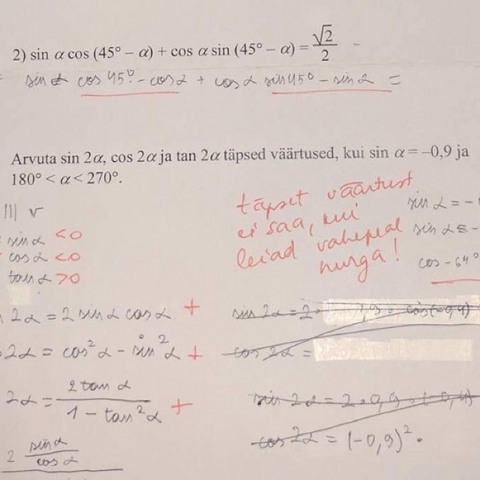 2) sin α cos (45° – α) + cos α sin (45° – α) = √2/2
sin α cos 45° - cos α + cos α sin 45° - sin α =
Arvuta sin 2α, cos 2α ja tan 2α täpsed väärtused, kui sin α = –0,9 ja
180° < α < 270°.
III v
sin α < 0
cos α < 0
tan α > 0
täpset väärtust
ei saa, kui
leiad vahepeal
nurga!
sin α = -
sin α = -
cos -64°
2α = 2 sin α cos α +
2α = cos²α - sin²α +
2α = 2 tan α / 1 - tan²α +
2 sin α / cos α
sin 2α = 2 ·
cos 2α =
sin 2α = 2 · 0,9 · (-0,4)
cos 2α = (-0,9)² ·